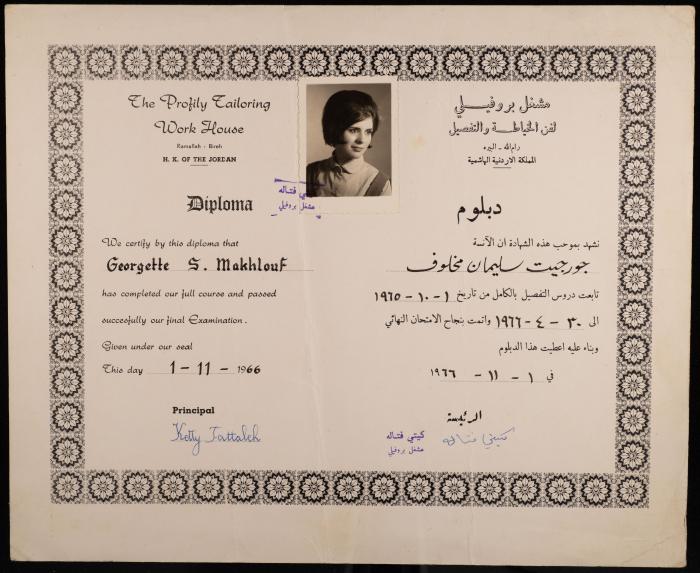 The Profily Tailoring
Work House
Ramallah - Bireh
H. K. OF THE JORDAN
Diploma
We certify by this diploma that
Georgette S. Makhlouf
has completed our full course and passed
successfully our final Examination.
Given under our seal
This day 1 - 11 - 1966
Principal
Ketty Fattaleh
كيتي فتاله
مشغل بروفيلي
مشغل بروفيلي
لفن الخياطة والتفصيل
رام الله - البيره
المملكة الاردنية الهاشمية
دبلوم
نشهد بموجب هذه الشهادة ان الآنسة
جورجيت سليمان مخلوف
تابعت دروس التفصيل بالكامل من تاريخ ١ - ١٠ - ١٩٦٥
الى ٣٠ - ٤ - ١٩٦٦ واتمت بنجاح الامتحان النهائي
وبناء عليه اعطيت هذا الدبلوم
في ١ - ١١ - ١٩٦٦
الرئيسة
كيتي فتاله
كيتي فتاله
مشغل بروفيلي